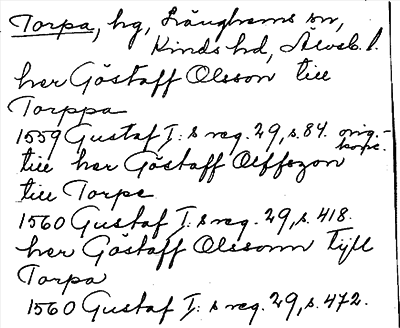 Torpa, hg, Länghems sn,
Kinds hd, Älvsb. l.
her Göstaff Olsson till
Torppa
1559 Gustaf I: s reg. 29, s. 84. orig.-
konc.
till her Göstaff Olffszon
till Torpe
1560 Gustaf I: s reg. 29, s. 418.
her Göstaff Olssonn tijll
Torpa
1560 Gustaf I: s reg. 29, s. 472.